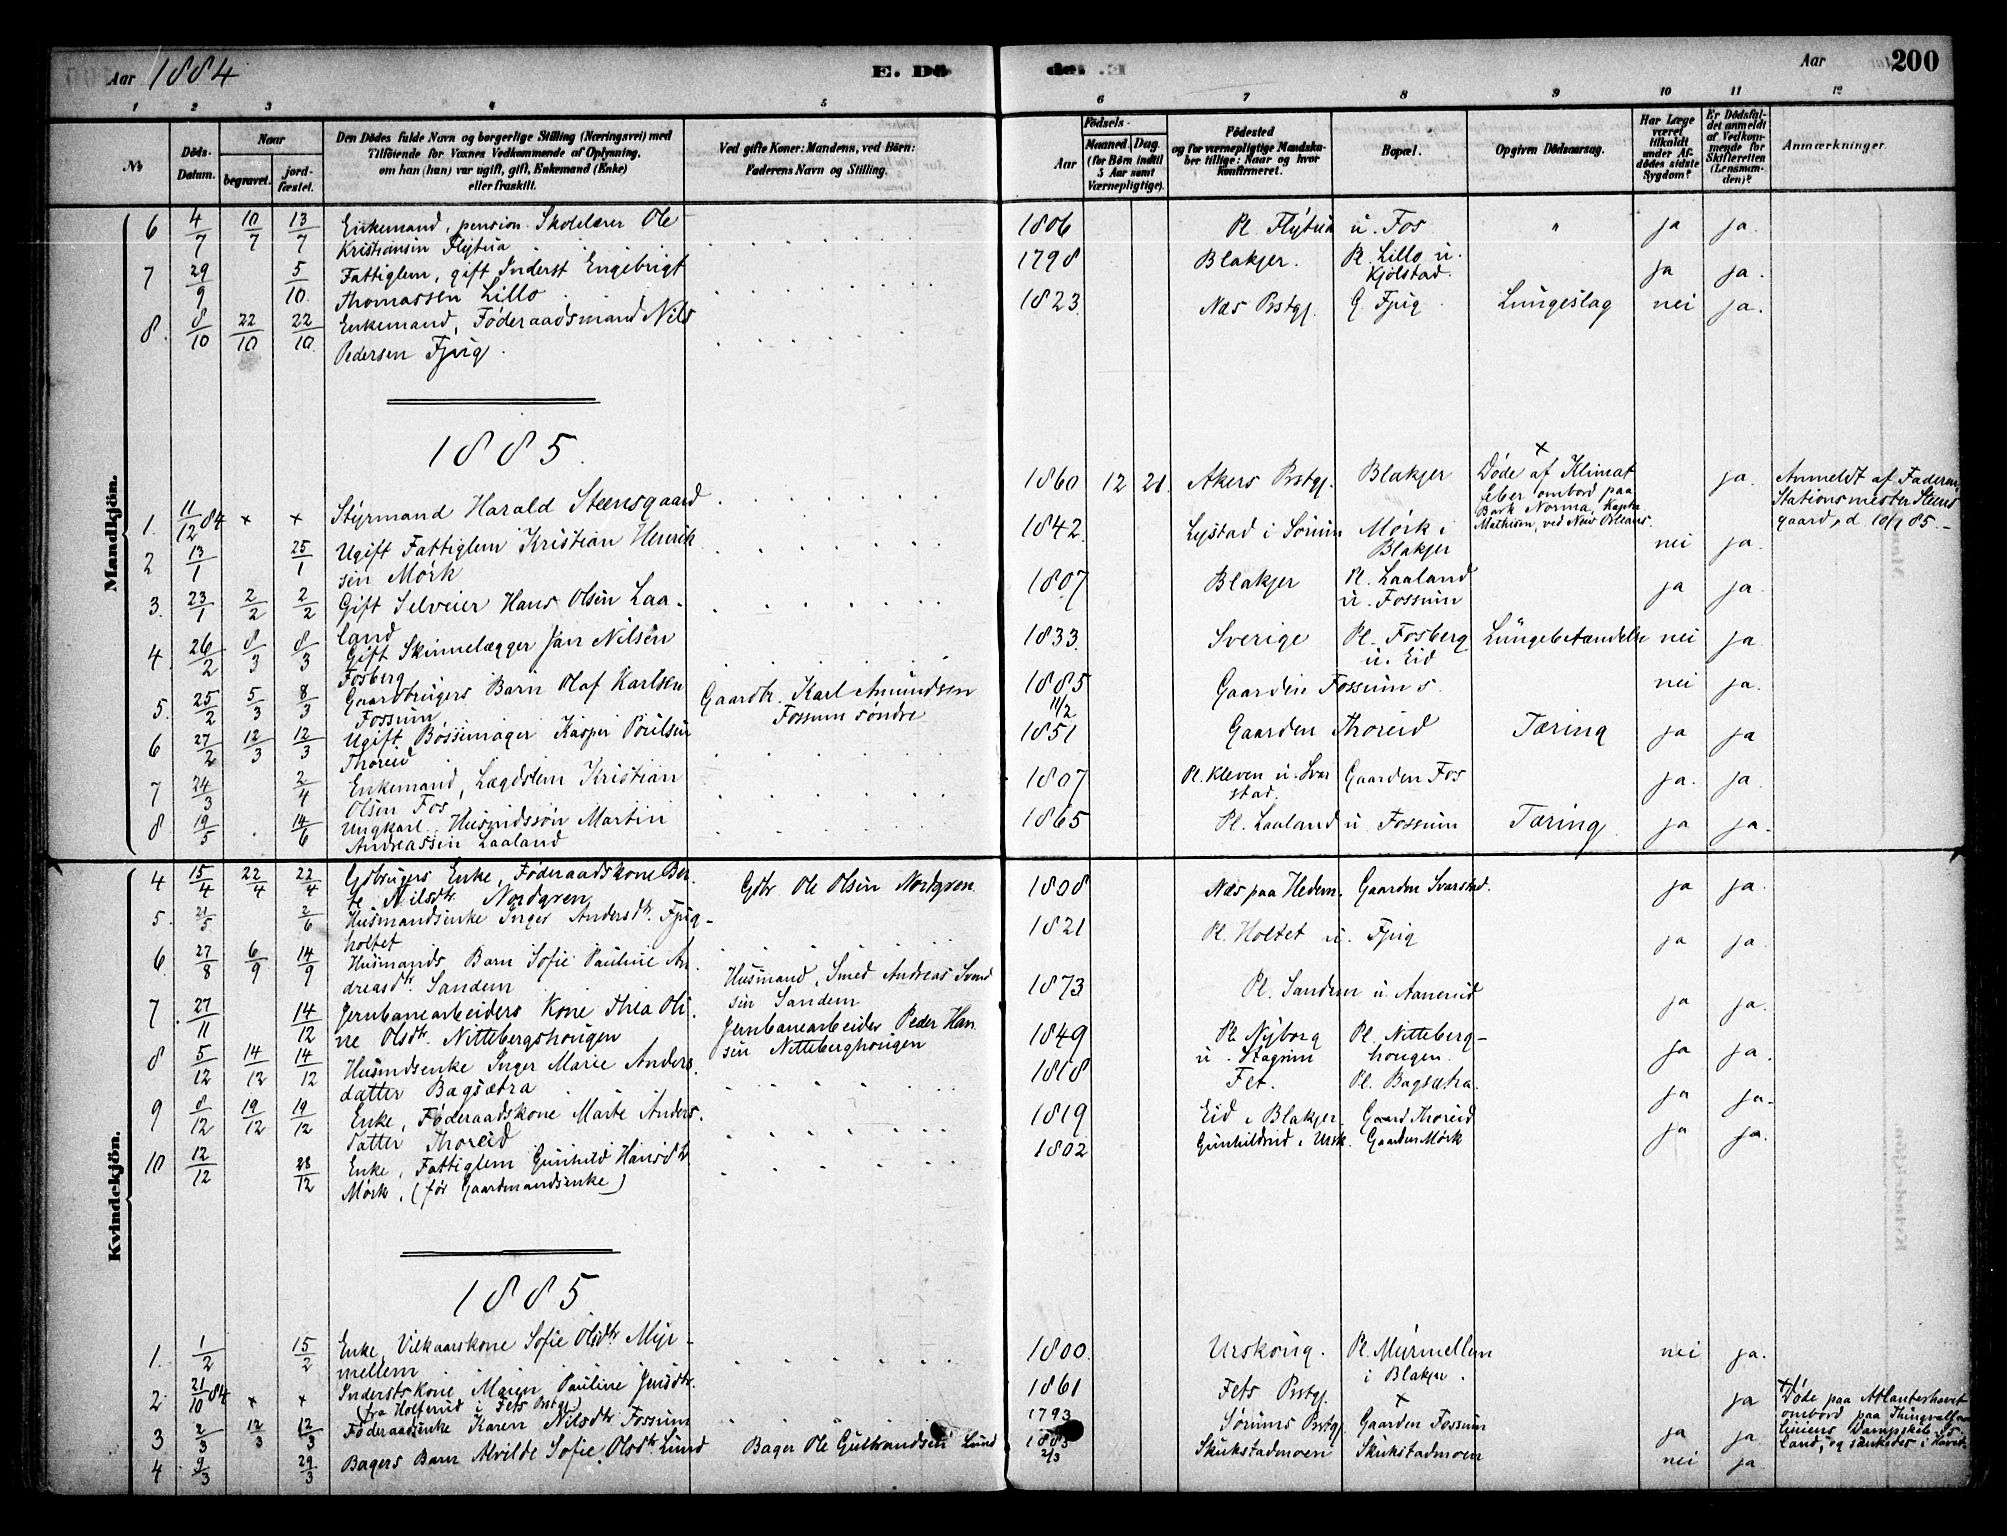 Aar 1884 E. Dö- de. Aar 200
1 2 3 4 5 6 7 8 9 10 11 12
№ Döds-Datum. Naar begravet. jord-fæstet. Den Dödes fulde Navn og borgerlige Stilling (Næringsvei) med Tilföiende for Voxnes Vedkommende af Oplysning, om han (hun) var ugift, gift, Enkemand (Enke) eller fraskilt. Ved gifte Koner: Mandens, ved Börn: Faderens Navn og Stilling. Födsels- Aar Maaned. Dag. (for Börn indtil 5 Aar samt Værnepligtige). Födested og for værnepligtige Mandskaber tillige: Naar og hvor konfirmeret. Bopæl. Opgiven Dödsaarsag. Har Læge været tilkaldt under Afdödes sidste Sygdom? Er Dödsfaldet anmeldt af Vedkommende for Skifteretten (Lensmanden)? Anmærkninger.
Mandkjön.
6 4/7 10/7 13/7 Enkemand, pension. Skolelærer Ole 1806 Pl. Flytua u. Fos " ja ja.
Kristiansen Flytua
7 29/9 5/10 Fattiglem, gift Inderst Engebrigt 1798 Blakjer. Pl. Lillo u. Kjölstad. ja ja.
Thomassen Lillo
8. 8/10 22/10 22/10 Enkemand, Föderaadsmand Nils 1823 Næs Prstgj. G. Fjug Lungeslag nei ja.
Pedersen Fjug.
1885
1. 11/12 84 × × Styrmand Harald Steensgaard 1860 12 21. Akers Prstgj. Blakjer × Døde af Klimatfeber ombord paa Bark Norma, Kaptn Mathisen, ved New Orleans. ja. Anmeldt af Faderen, Stationsmester Steensgaard, d. 10/1 85 -
2 13/1 25/1 Ugift Fattiglem Kristian Henrik 1842 Lystad i Sörum Mörk i Blakjer nei ja.
sen Mörk
3. 23/1 2/2 2/2 Gift Selveier Hans Olsen Laa- 1807 Blakjer Pl. Laaland u. Fossum ja ja.
land
4. 26/2 8/3 8/3 Gift Skinnelægger Jan Nilsen 1833 Sverige Pl. Fosberg u. Eid Lungebetændelse nei ja
Fosberg
5. 25/2 5/3 8/3 Gaardbrugers Barn Olaf Karlsen Gaardbr. Karl Amundsen 1885 11/2 Gaarden Fossum s. nei ja.
Fossum Fossum söndre
6 27/2 12/3 12/3 Ugift Bössemager Kasper Poulsen 1851 Gaarden Thoreid Tæring ja ja
Thoreid
7 24/3 2/4 Enkemand, Lægdslem Kristian 1807 Pl. Kleven u. Svarstad. Gaarden Fos ja. ja.
Olsen Fos
8. 19/5 14/6 Ungkarl, Husmdssön Martin 1865 Pl. Laaland u Fossum Tæring ja ja.
Andreassen Laaland
Kvindekjön.
4 15/4 22/4 22/4 Gdbrugers Enke, Föderaadskone Ber- Gdbr Ole Olsen Nordgren. 1808 Næs paa Hedem. Gaarden Svarstad. ja ja.
te Nilsdtr. Nordgren
5. 21/5 2/6 Husmandsenke Inger Andersdtr. Fjug- 1821 Pl. Holtet u. Fjug ja ja.
holtet
6. 27/8 6/9 14/9 Husmands Barn Sofie Pauline An- Husmand, Smed Andreas Svend 1873 Pl. Sandem u Aanerud ja ja.
dreasdtr. Sandem sen Sandem
7 27/11 14/12 Jernbanearbeiders Kone Thea Oli- Jernbanearbeider Peder Han 1849 Pl. Nyborg u. Stagrim Pl. Nitteberg-hougen. ja ja.
ne Olsdtr. Nittebergshougen sen Nitteberghougen
8 5/12 14/12 14/12 Husmdsenke Inger Marie Anders- 1818 Fet. Pl. Bagsætra. ja ja.
datter Bagsætra
9 8/12 19/12 19/12 Enke, Föderaadskone Marte Anders- 1819 Eid i Blakjer Gaard Thoreid ja ja.
datter Thoreid
10 12/12 28/12 Enke, Fattiglem Gunhild Hansdtr. 1802 Gunhildrud i Ursk. Gaarden Mörk
Mörk. (för Gaardmandsenke)
1885
1. 1/2 15/2 Enke, Vilkaarskone Sofie Olsdtr Myr- 1800. Urskoug. Pl. Murmellem i Blakjer. nei ja.
mellem
2. 21/10 84 × × Inderstskone Maren Pauline Jensdtr. 1861 Fets Prstgj. × ja × Døde paa Atlanterhavet ombord paa Thingvallaliniens Dampskib Island, og sænkedes i Havet.
fra Holterud i Fets Prstgj.
3 2/3 12/3 12/3 Föderaadsenke Karen Nilsdtr Fossum 1793 Sörums Prstgj. Gaarden Fossum ja ja
4. 9/3 29/3 Bagers Barn Alvilde Sofie Olsdtr Lund Bager Ole Gulbrandsen Lund 1885 2/3 Skukstadmoen Skukstadmoen nei ja